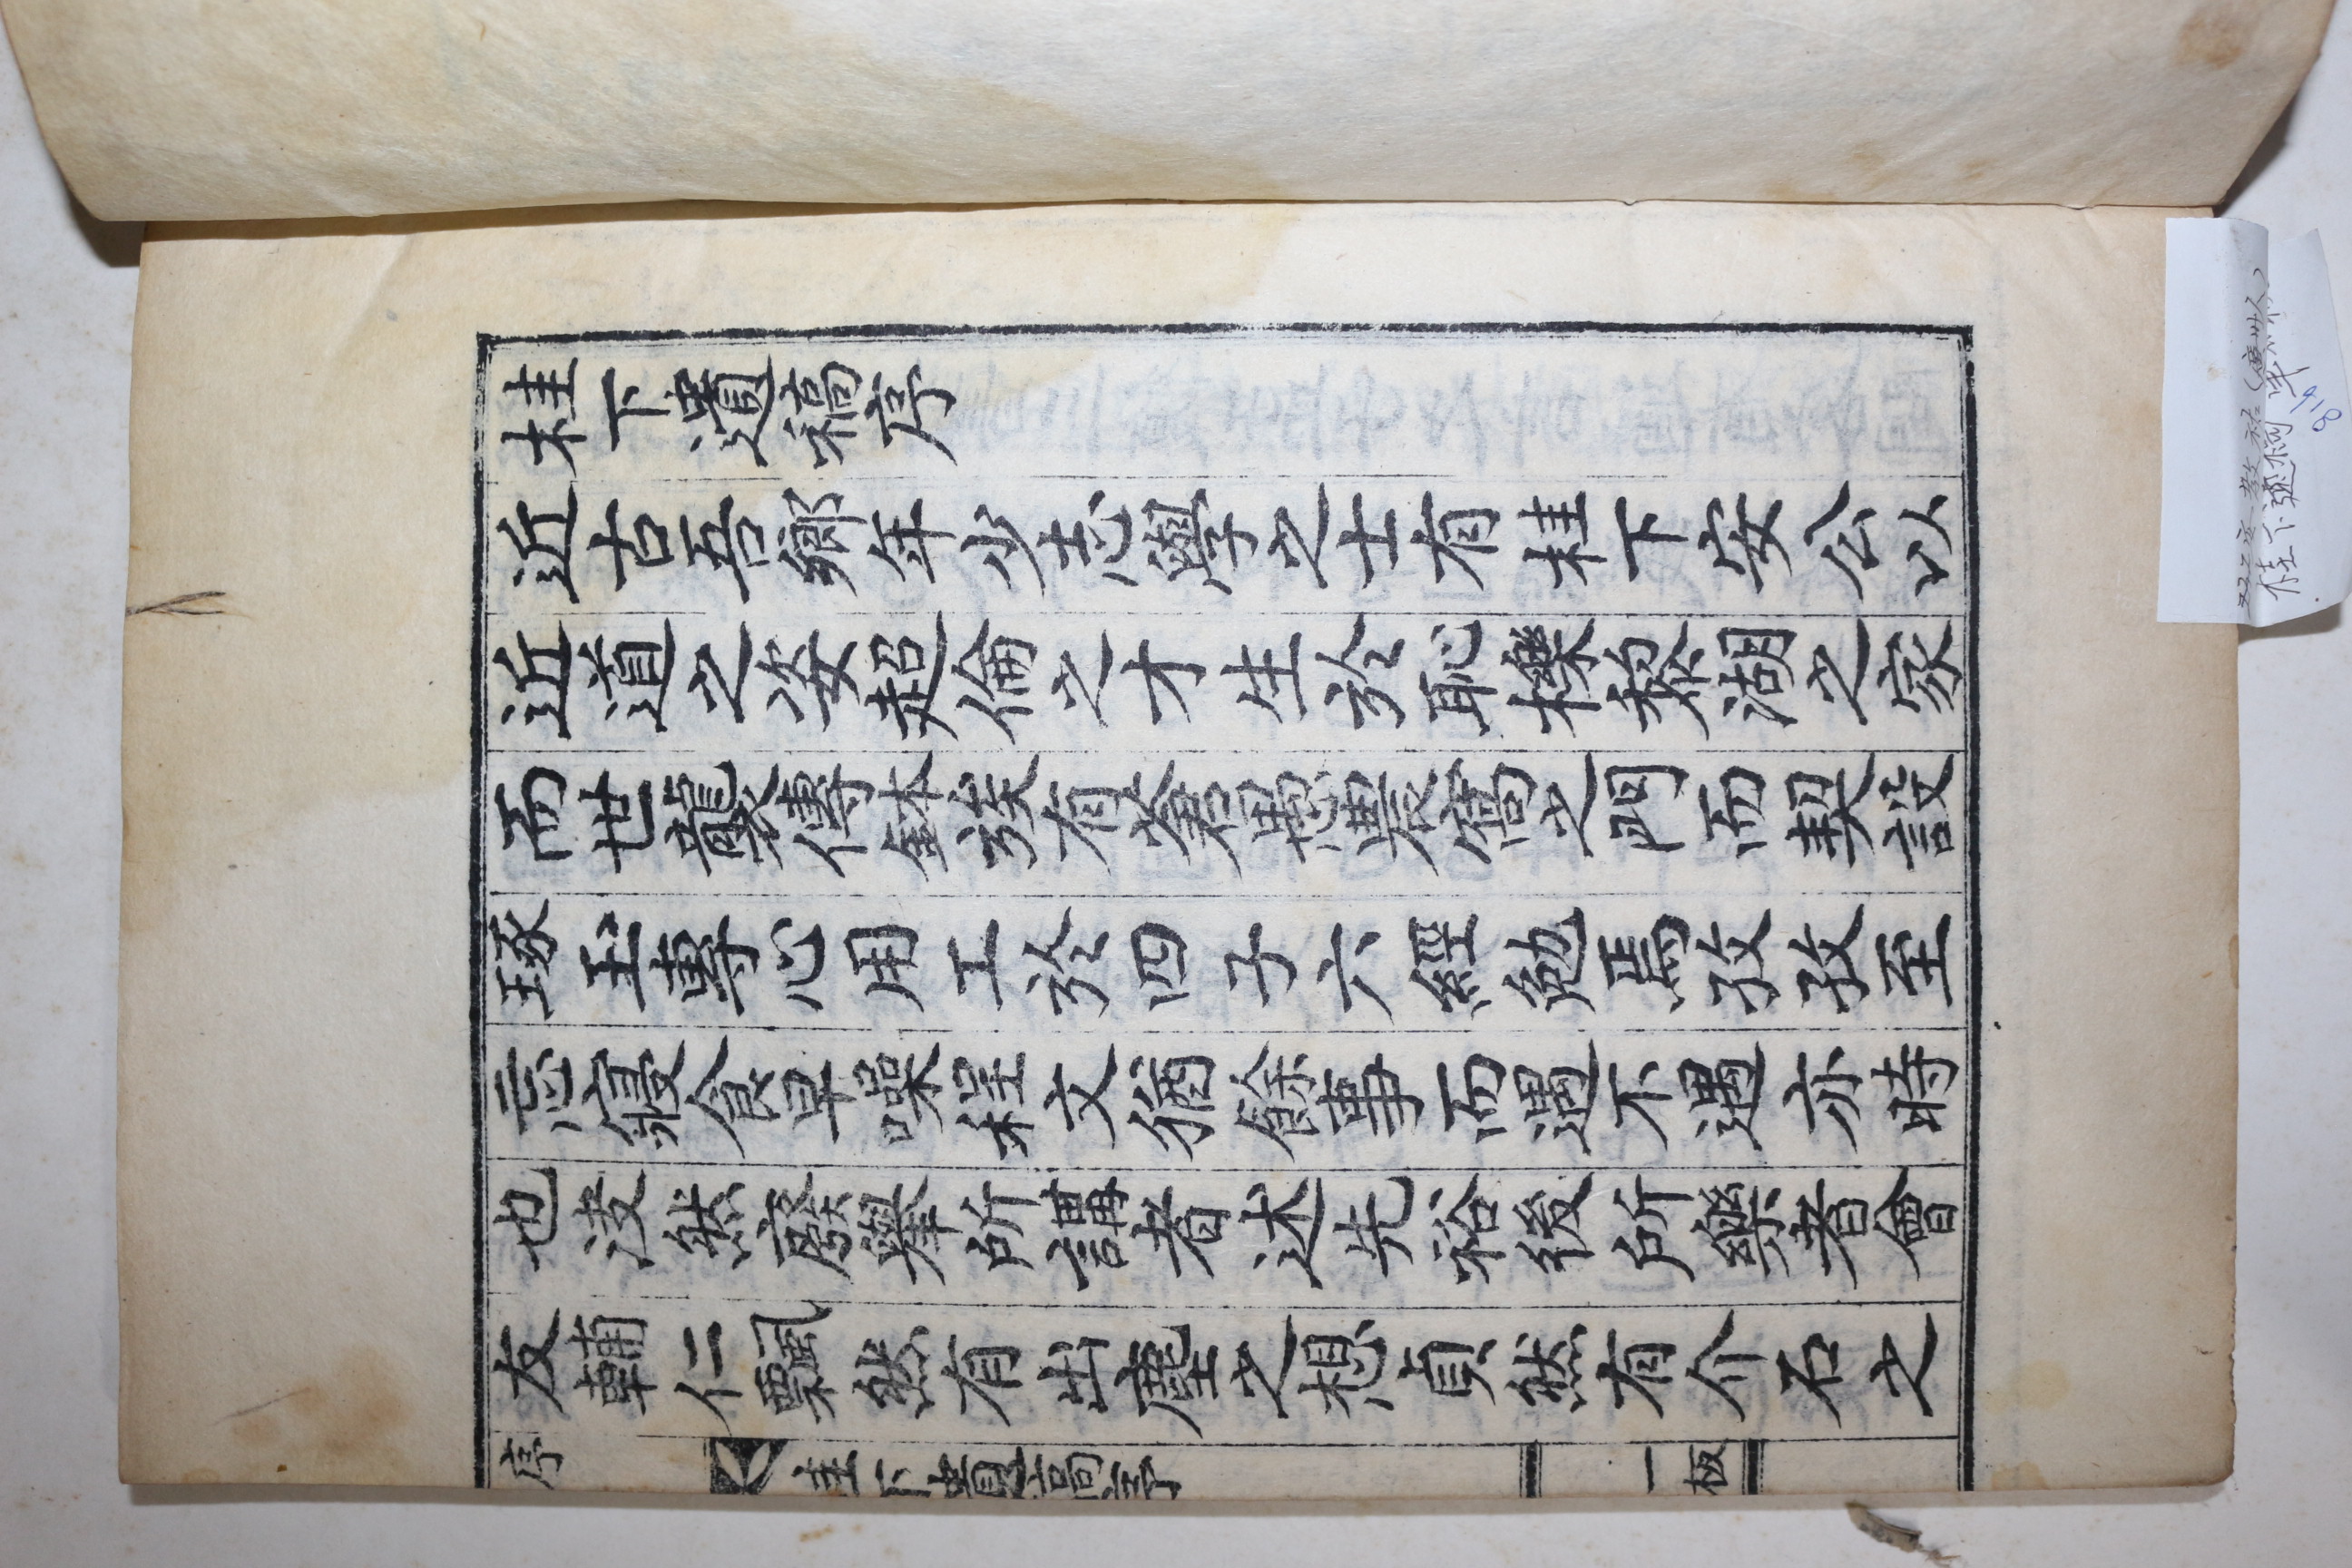 桂下遺稿序
近古吾鄉年少志學之士有桂下安公以
近道之姿超倫之才生於恥櫟黎湖之家
而世襲傳鉢族有蒼愚農窩之門而契設
琢玉專心用工於四子六經勉焉孜孜至
忘寢食早噪程文猶餘事而遇不遇亦時
也浡然廢擧所講者述先裕後所樂者會
友輔仁飄然有出塵之想貞然有介石之
序
桂下遺稿序
一板
桂下遺稿 單
918